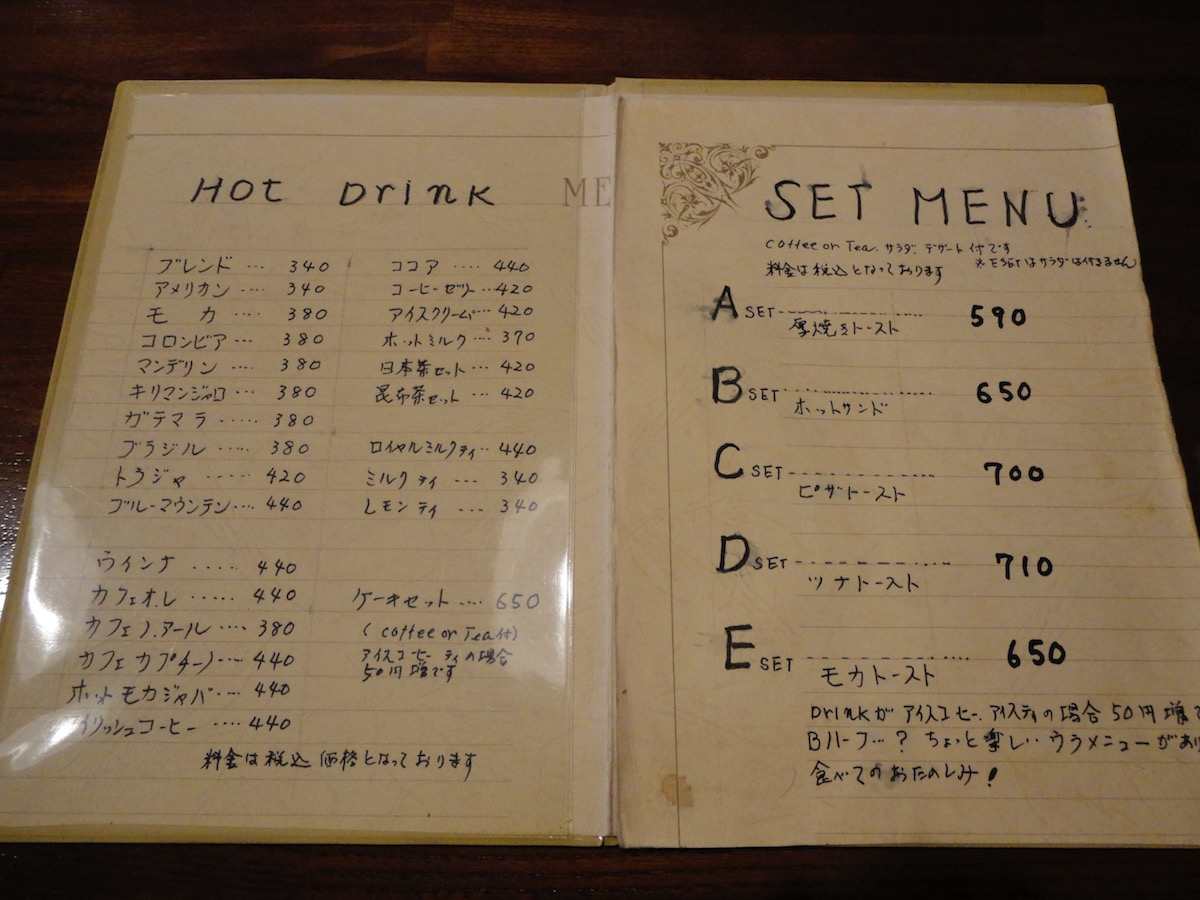 HOT Drink
ME
ブレンド … 340
アメリカン …. 340
モカ …. 380
コロンビア … 380
マンデリン …. 380
キリマンジャロ … 380
ガテマラ ..... 380
ブラジル ..... 380
トラジャ ..... 420
ブルーマウンテン …. 440
ウインナ ..... 440
カフェオ.レ ..... 440
カフェノ.アール …. 380
カフェカプチーノ …. 440
ホットモカジャバ …. 440
アイリッシュコーヒー …. 440
ココア ..... 440
コーヒーゼリー … 420
アイスクリーム … 420
ホットミルク …. 370
日本茶セット … 420
昆布茶セット … 420
ロイヤルミルクティ.. 440
ミルクティ … 340
レモンティ … 340
ケーキセット …. 650
(coffee or Tea付)
アイスコーヒー ティの場合
50円増です
料金は税込価格となっております
SET MENU
Coffee or Tea. サラダ. デザート付です
※ESETはサラダは付きません
料金は税込となっております
A SET 590
厚焼きトースト
B SET 650
ホットサンド
C SET 700
ピザトースト
D SET 710
ツナトースト
E SET 650
モカトースト
Drinkがアイスコーヒー、アイスティの場合50円増で
Bハーフ…? ちょっと楽しいウラメニューがあり
食べてのおたのしみ!